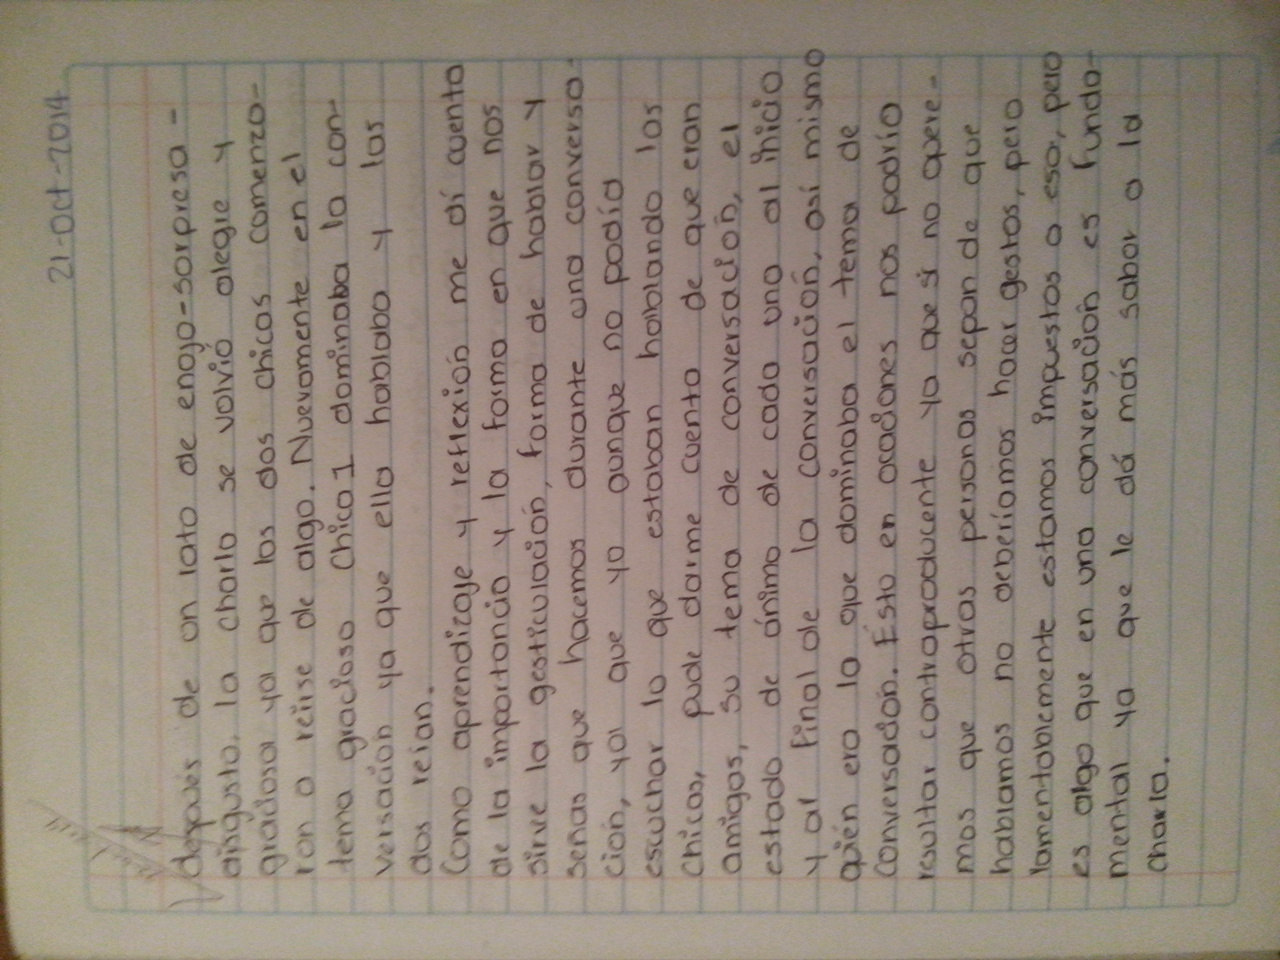 21-Oct-2014
después de un rato de enojo-sorpresa-
disgusto, la charla se volvió alegre y
graciosa ya que las dos chicas comenza-
ron a reirse de algo. Nuevamente en el
tema gracioso Chica 1 dominaba la con-
versación ya que ella hablaba y las
dos reían.
Como aprendizaje y reflexión me dí cuenta
de la importancia y la forma en que nos
sirve la gesticulación, forma de hablar y
señas que hacemos durante una conversa-
ción, ya que yo aunque no podía
escuchar lo que estaban hablando las
chicas, pude darme cuenta de que eran
amigas, su tema de conversación, el
estado de ánimo de cada una al inicio
y al final de la conversación, así mismo
quién era la que dominaba el tema de
conversación. Esto en ocaciones nos podría
resultar contraproducente ya que si no quere-
mos que otras personas sepan de que
hablamos no deberíamos hacer gestos, pero
lamentablemente estamos impuestos a eso, pero
es algo que en una conversación es funda-
mental ya que le dá más sabor a la
charla.